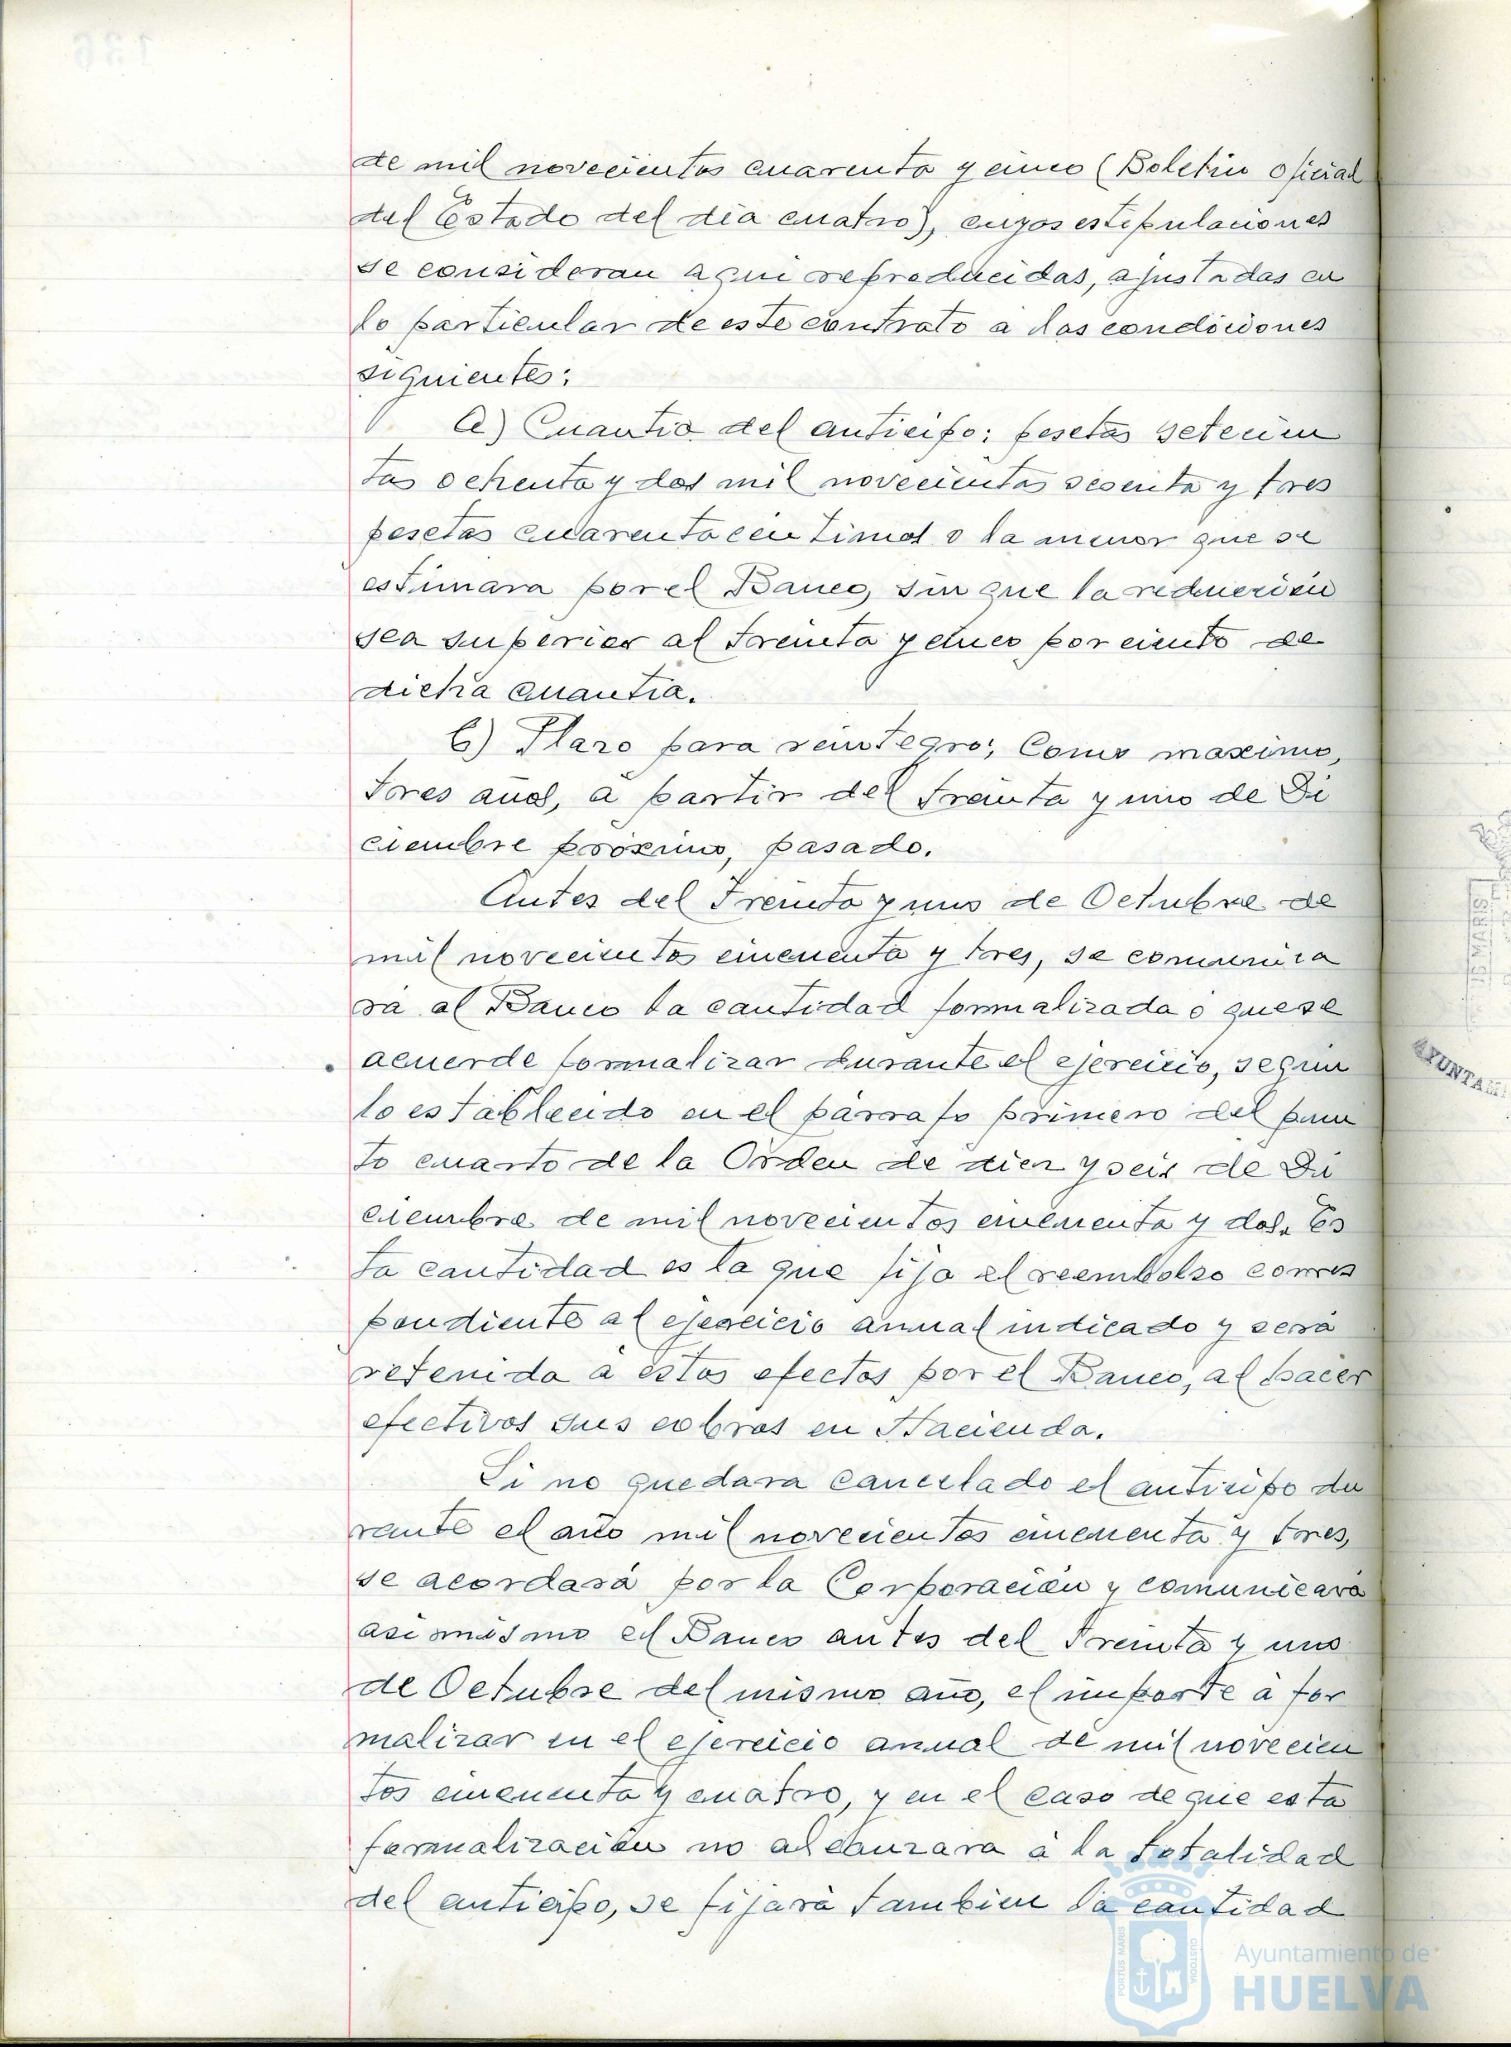 de mil novecientos cuarenta y cinco (Boletín Oficial
del Estado del día cuatro), cuyas estipulaciones
se consideran aqui reproducidas, ajustadas en
lo particular de este contrato a las condiciones
siguientes:
a) Cuantia del anticipo: pesetas setecien
tas ochenta y dos mil novecientas sesenta y tres
pesetas cuarenta centimos o la menor que se
estimara por el Banco, sin que la reducción
sea superior al treinta y cinco por ciento de
dicha cuantia.
b) Plazo para reintegro: Como maximo,
tres años, a partir del treinta y uno de Di
ciembre próximo, pasado.
Antes del treinta y uno de Octubre de
mil novecientos cincuenta y tres, se comunica
rá al Banco la cantidad formalizada ó que se
acuerde formalizar durante el ejercicio, según
lo establecido en el párrafo primero del pun
to cuarto de la Orden de diez y seis de Di
ciembre de mil novecientos cincuenta y dos. Es
ta cantidad es la que fija el reembolso corres
pondiente al ejercicio anual indicado y será
retenida a estos efectos por el Banco, al hacer
efectivos sus cobros en Hacienda.
Si no quedara cancelado el anticipo du
rante el año mil novecientos cincuenta y tres,
se acordará por la Corporación y comunicará
asi mismo el Banco antes del treinta y uno
de Octubre del mismo año, el importe á for
malizar en el ejercicio anual de mil novecien
tos cincuenta y cuatro, y en el caso de que esta
formalización no alcanzara á la totalidad
del anticipo, se fijará tambien la cantidad
AYUNTAM
PORTUS MARIS
CUSTODIA
Ayuntamiento de
HUELVA